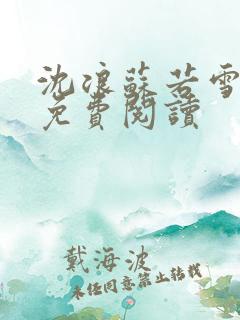 沈浪蘇若雪
免費閱讀
戴海波
未經同意禁止轉載